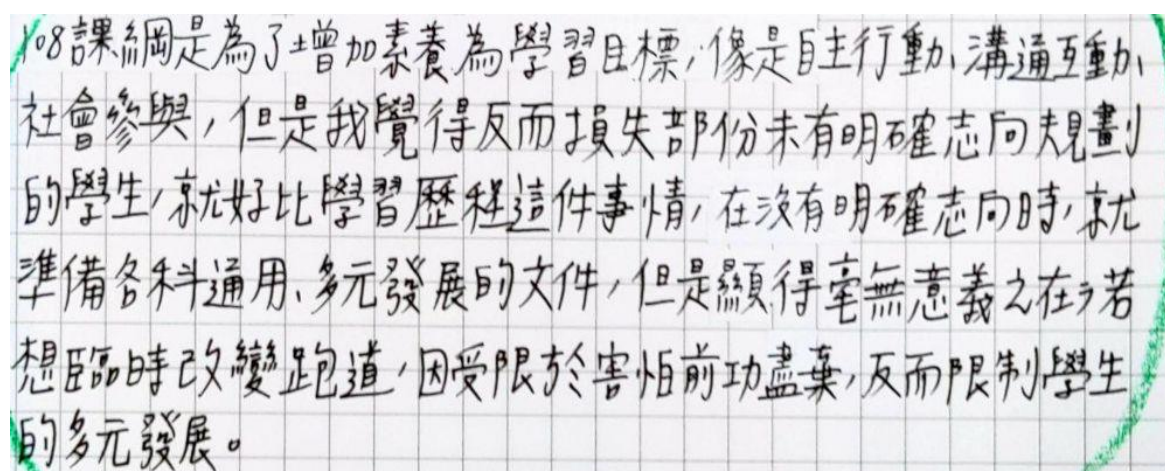 108課綱是為了增加素養為學習目標，像是自主行動、溝通互動、
社會參與，但是我覺得反而損失部份未有明確志向規劃
的學生，就好比學習歷程這件事情，在沒有明確志向時，就
準備各科通用、多元發展的文件，但是顯得毫無意義之在，若
想臨時改變跑道，因受限於害怕前功盡棄，反而限制學生
的多元發展。